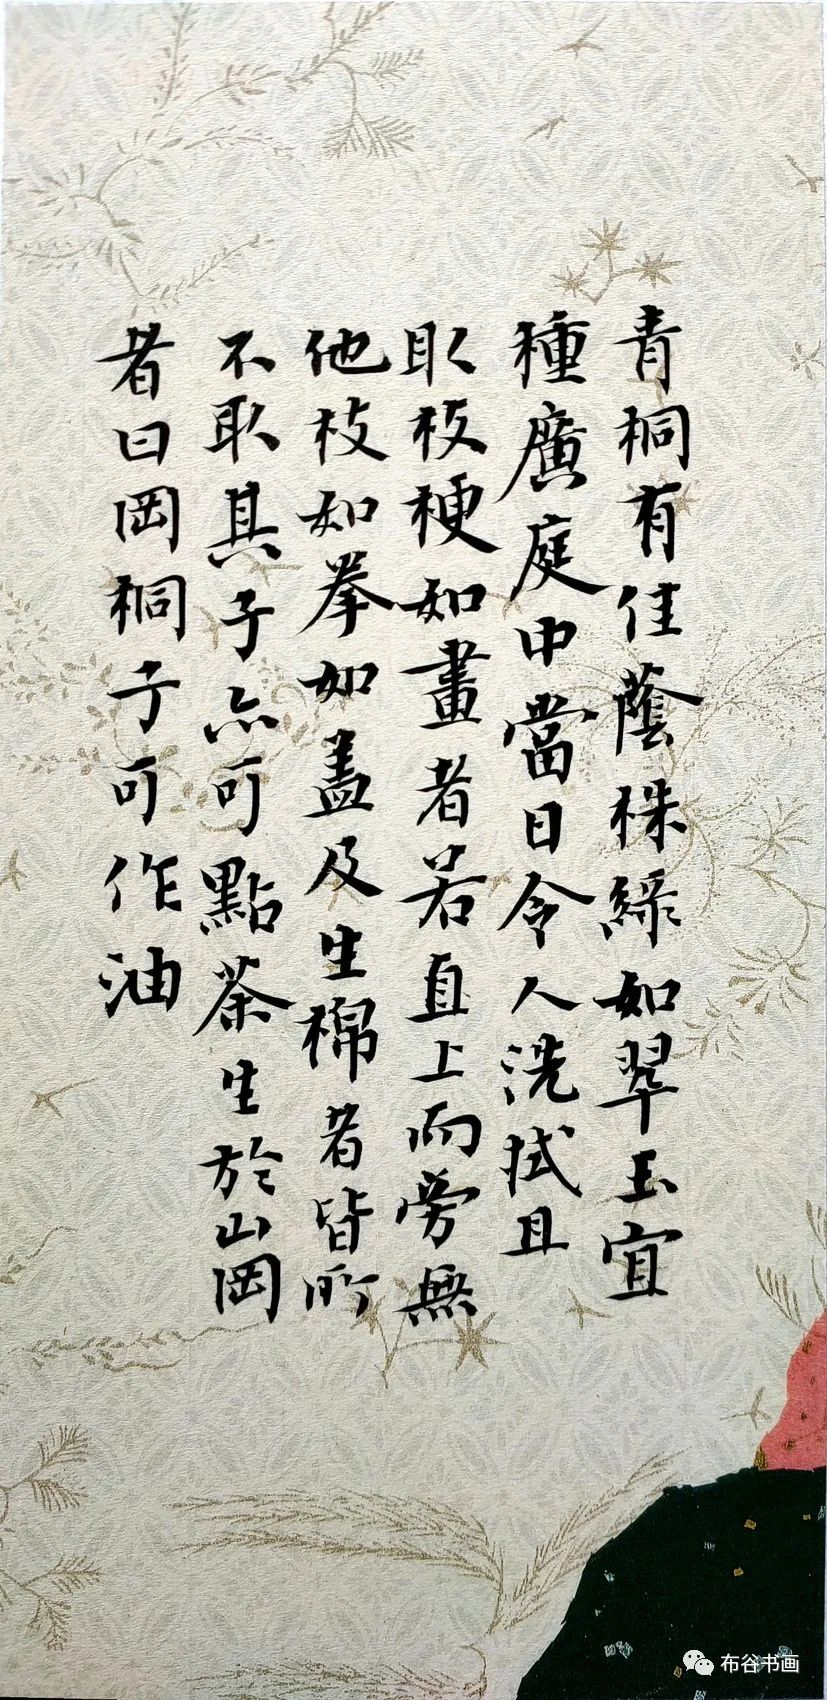 青桐有佳蔭株綠如翠玉宜
種廣庭中當日令人洗拭且
取枝梗如畫者若直上而旁無
他枝如拳如蓋及生棉者皆所
不取其子亦可點茶生於山岡
者曰岡桐子可作油
布谷书画